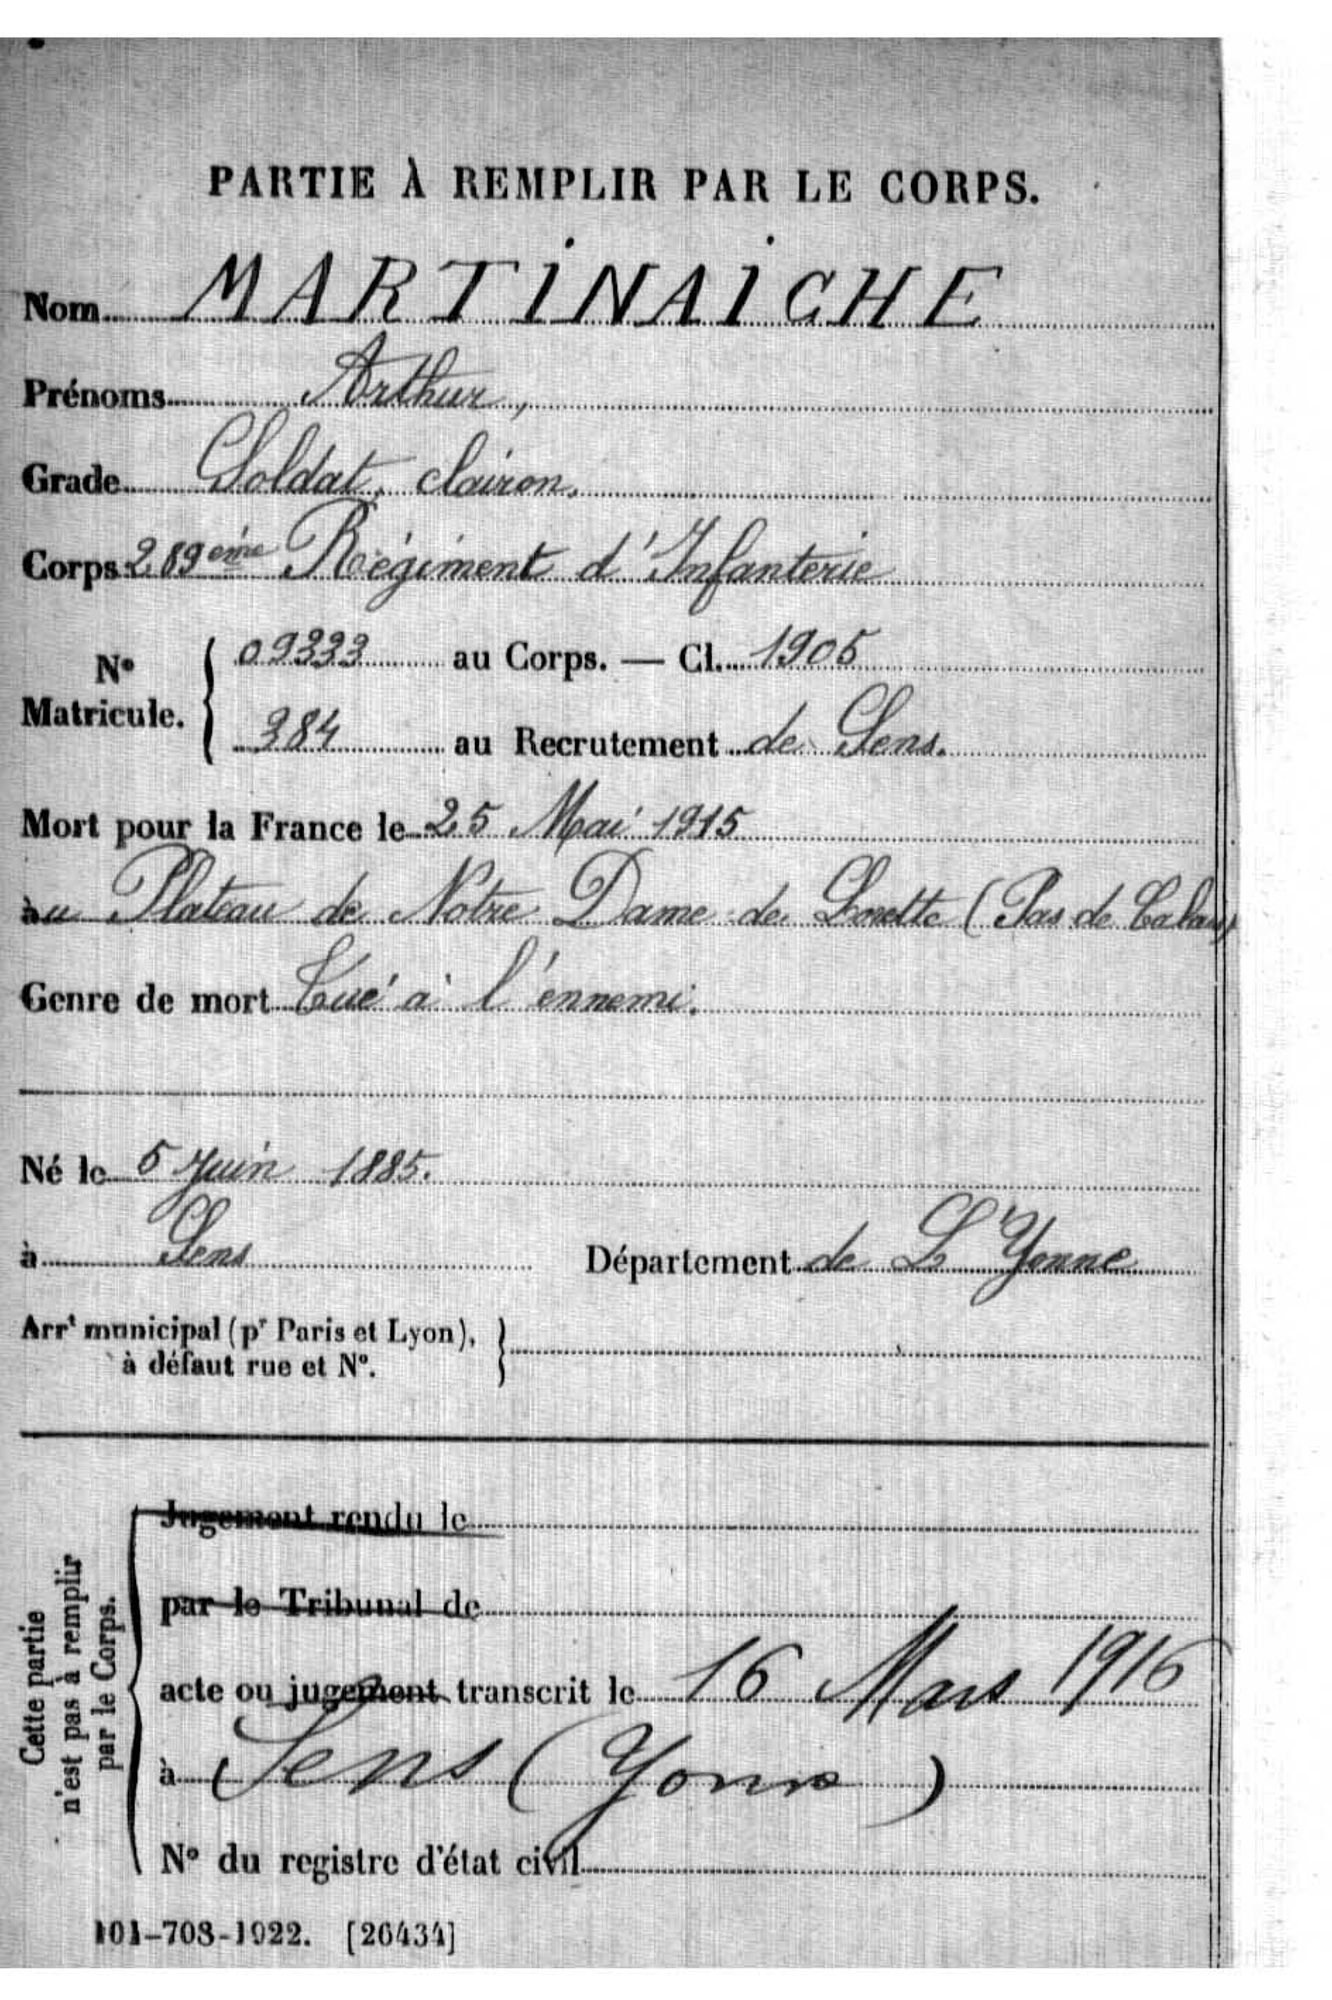 PARTIE À REMPLIR PAR LE CORPS.
Nom MARTINAICHE
Prénoms Arthur,
Grade Soldat, clairon.
Corps 289ème Régiment d'Infanterie
N° Matricule. 09333 au Corps. — Cl. 1905
384 au Recrutement de Sens.
Mort pour la France le 25 Mai 1915
au Plateau de Notre Dame de Lorette (Pas de Calais)
Genre de mort Tué à l'ennemi.
Né le 5 Juin 1885.
à Sens Département de L'Yonne
Arrt municipal (pr Paris et Lyon),
à défaut rue et N°.
Cette partie
n'est pas à remplir
par le Corps.
Jugement rendu le
par le Tribunal de
acte ou jugement transcrit le 16 Mars 1916
à Sens (Yonne)
N° du registre d'état civil
101-708-1922. [26434]